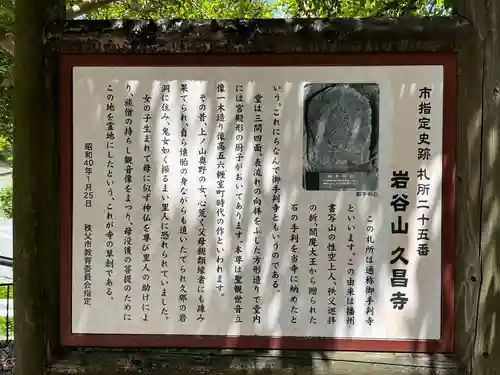 市指定史跡 札所二十五番
岩谷山 久昌寺
この札所は通称御手判寺
といいます。この由来は播州
書写山の性空上人、秩父巡拝
の折、閻魔大王から贈られた
石の手判を当寺に納めたと
御手判石
いう。これにちなんで御手判寺ともいうのである。
堂は三間四面、表流れの向拝をふした方形造りで堂内
には宮殿形の厨子がおいてあります。本尊は聖観世音立
像一木造り像高五六糎室町時代の作といわれます。
その昔、上ノ山奥野の女、心荒く父母親類縁者にも疎み
果てられ、自ら懐胎の身ながらも追いたてられ久那の岩
洞に住み、鬼女如く振るまい里人に恐れられていました。
女の子生まれて母に似ず神仏を尊び里人の助けによ
り、旅僧の持ちし観音像をまつり、母没後の菩提のために
この地を霊地にしたという、これが寺の草創である。
昭和40年1月25日 秩父市教育委員会指定